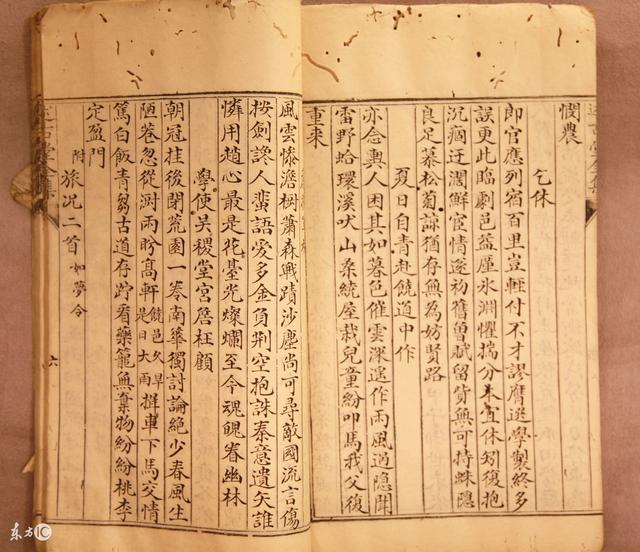 憫農
乞休
即官應列宿百里豈輕付不才謬膺選學製終多
誤更此臨劇邑益厪氷淵懼揣分本宜休矧復抱
沉痼迂濶鮮宦情遂初舊曾賦留貲無可持蛛隱
良足慕松菊諒猶存無為妨賢路
夏日自青赴饒道中作
亦念輿人困其如暮色催雲深遥作雨風過隱聞
雷野蛤環溪吠山桑繞屋栽兒童紛叩馬我父復
重来
風雲慘澹樹蕭森戰蹟沙塵尚可尋敵國流言傷
按劍讒人蜚語愛多金負荆空抱誅秦意遺矢誰
憐用趙心最是花臺光燦爛至今魂魄眷幽林
學使吴稷堂宮詹枉顧
朝冠挂後閉荒園一卷南華獨討論絶少春風生
陋巷忽從澍雨盼髙軒饒邑久旱是日大雨揖車下馬交情
篤白飯青芻古道存跱看藥籠無棄物紛紛桃李
定盈門
附旅况二首如夢令
六
东方IC